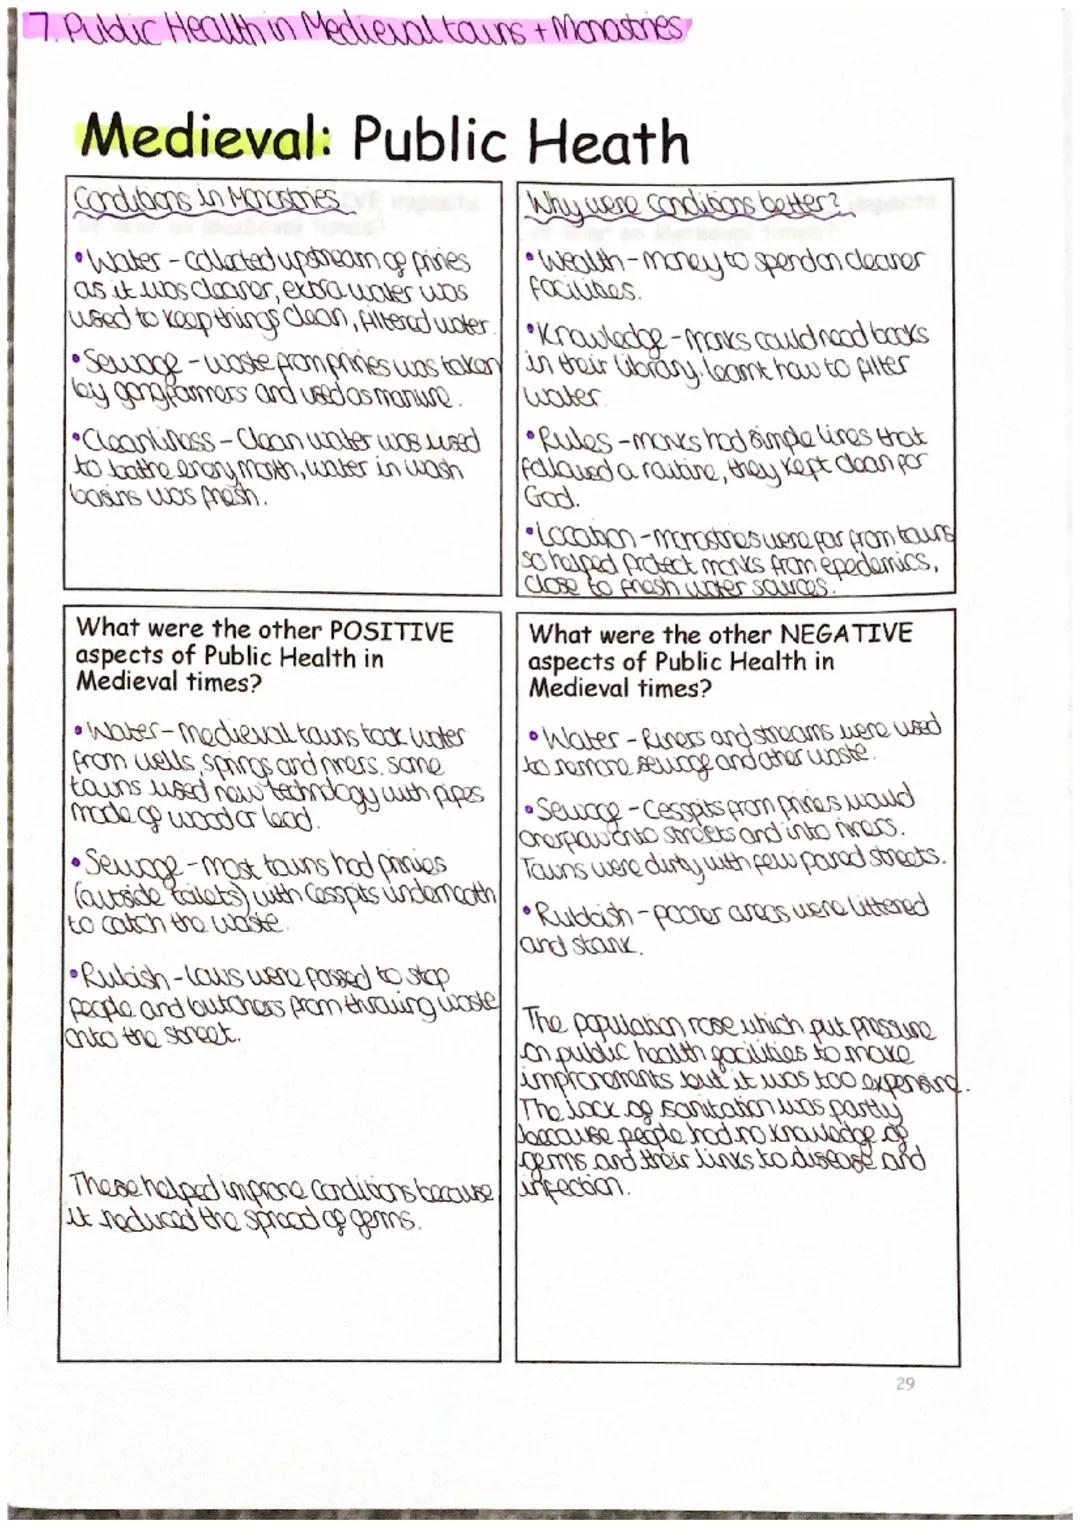 7. Public Health in Medieval towns + Monastries
Medieval: Public Heath
Conditions in Monastries
• Water - collected upstream of privies
as it was cleaner, extra water was
used to keep things clean, filtered water.
• Sewage - waste from privies was taken
by gongfarmers and used as manure.
• Cleanliness - Clean water was used
to bathe every month, water in wash
basins was fresh.
Why were conditions better?
• Wealth - money to spend on cleaner
facilities.
• Knowledge - monks could read books
in their library, learnt how to filter
water.
• Rules - monks had simple lives that
followed a routine, they kept clean for
God.
• Location - monastries were far from towns
so helped protect monks from epedemics,
close to fresh water sources.
What were the other POSITIVE
aspects of Public Health in
Medieval times?
• Water - medieval towns took water
from wells, springs and rivers. some
towns used new technology with pipes
made of wood or lead.
• Sewage - most towns had privies
(outside toilets) with cesspits underneath
to catch the waste.
• Rubish - laws were passed to stop
people and butchers from throwing waste
onto the street.
These helped improve conditions because
it reduced the spread of germs.
What were the other NEGATIVE
aspects of Public Health in
Medieval times?
• Water - Rivers and streams were used
to remove sewage and other waste.
• Sewage - Cesspits from privies would
overflow onto streets and into rivers.
Towns were dirty with few paved streets.
• Rubbish - poorer areas were littered
and stank.
The population rose which put pressure
on public health facilities to make
improvements but it was too expensive.
The lack of sanitation was partly
because people had no knowledge of
germs and their links to disease and
infection.
29